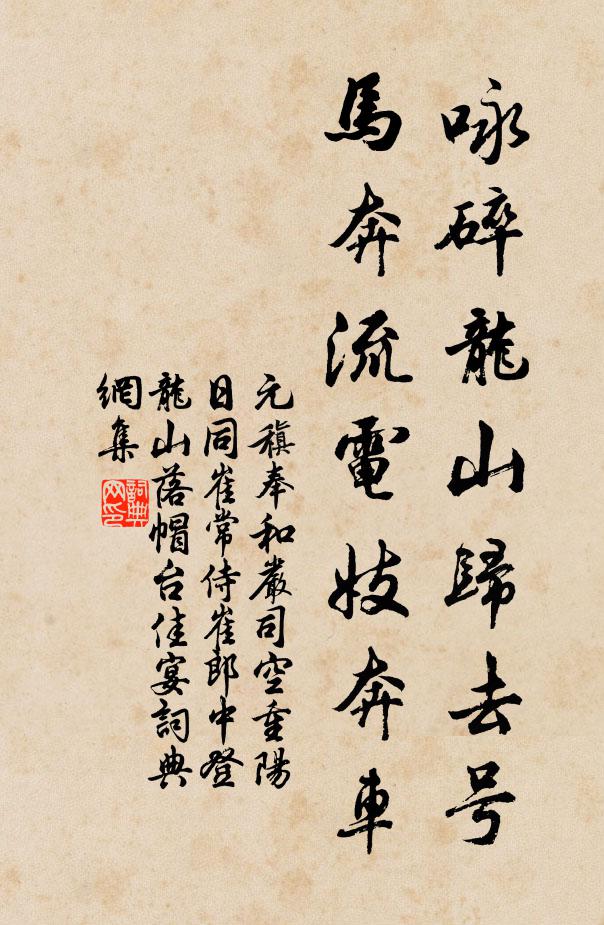 咏碎龍山歸去号
馬奔流電妓奔車
元稹奉和嚴司空重陽
日同崔常侍崔郎中登
龍山落帽台佳宴詞典
網集
詞典網印